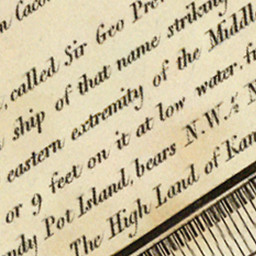 n Cacc
, called Sir Geo Pre
ship of that name striking
eastern extremity of the Middl
or 9 feet on it at low water. fr
ndy Pot Island, bears N.W.¼ N
The High Land of Kan